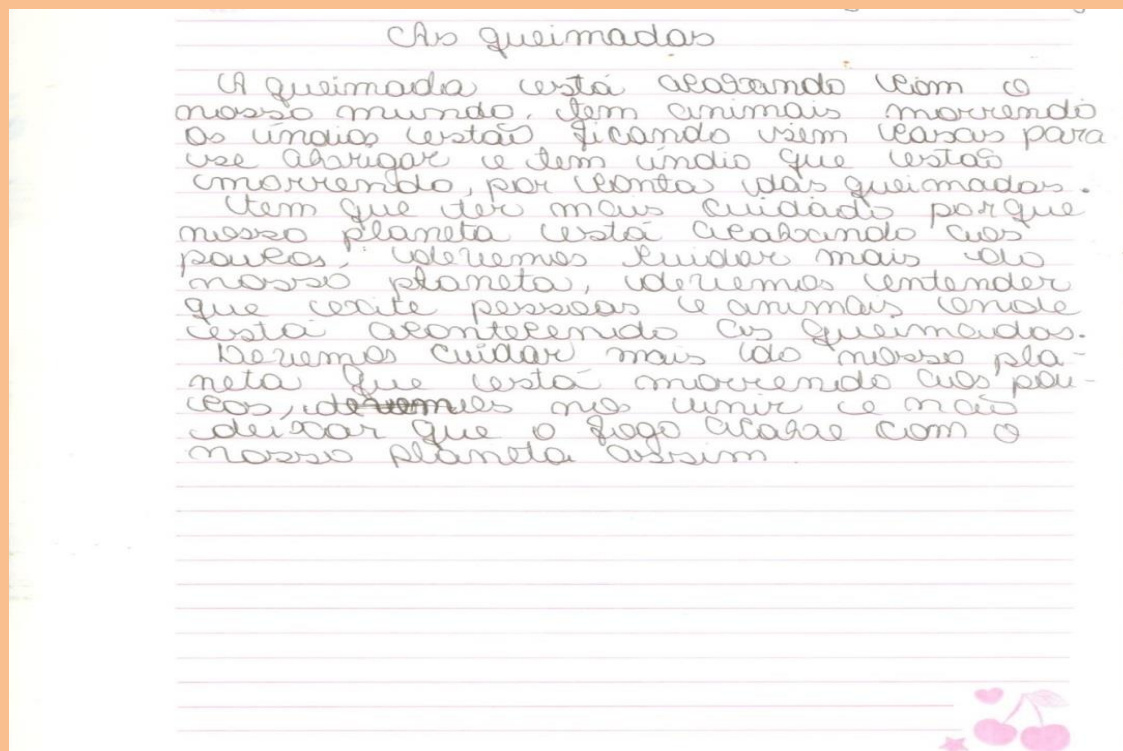 As queimadas
A queimada está acabando com o
nosso mundo. tem animais morrendo
os índios estão ficando sem casas para
se abrigar e tem índio que estão
morrendo, por conta das queimadas.
tem que ter mais cuidado porque
nosso planeta está acabando aos
poucos, devemos cuidar mais do
nosso planeta, devemos entender
que exite pessoas e animais onde
está acontecendo as queimadas.
Devemos cuidar mais do nosso pla-
neta que está morrendo aos pou-
cos, devemos nos unir e não
deixar que o fogo acabe com o
nosso planeta assim.